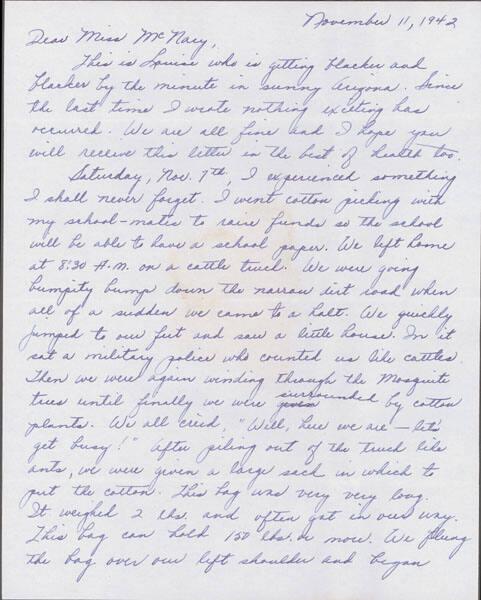 November 11, 1942
Dear Miss McNary,
This is Louise who is getting blacker and
blacker by the minute in sunny Arizona. Since
the last time I wrote nothing exciting has
occurred. We are all fine and I hope you
will receive this letter in the best of health too.
Saturday, Nov. 7th, I experienced something
I shall never forget. I went cotton picking with
my school-mates to raise funds so the school
will be able to have a school paper. We left home
at 8:30 A.M. on a cattle truck. We were going
bumpity bump down the narrow dirt road when
all of a sudden we came to a halt. We quickly
jumped to our feet and saw a little house. In it
sat a military police who counted us like cattles.
Then we were again winding through the Mosquite
trees until finally we were surrounded by cotton
plants. We all cried, "Well, here we are — let's
get busy!" After piling out of the truck like
ants, we were given a large sack in which to
put the cotton. This bag was very very long.
It weighed 2 lbs. and often got in our way.
This bag can hold 150 lbs. or more. We flung
the bag over our left shoulder and began